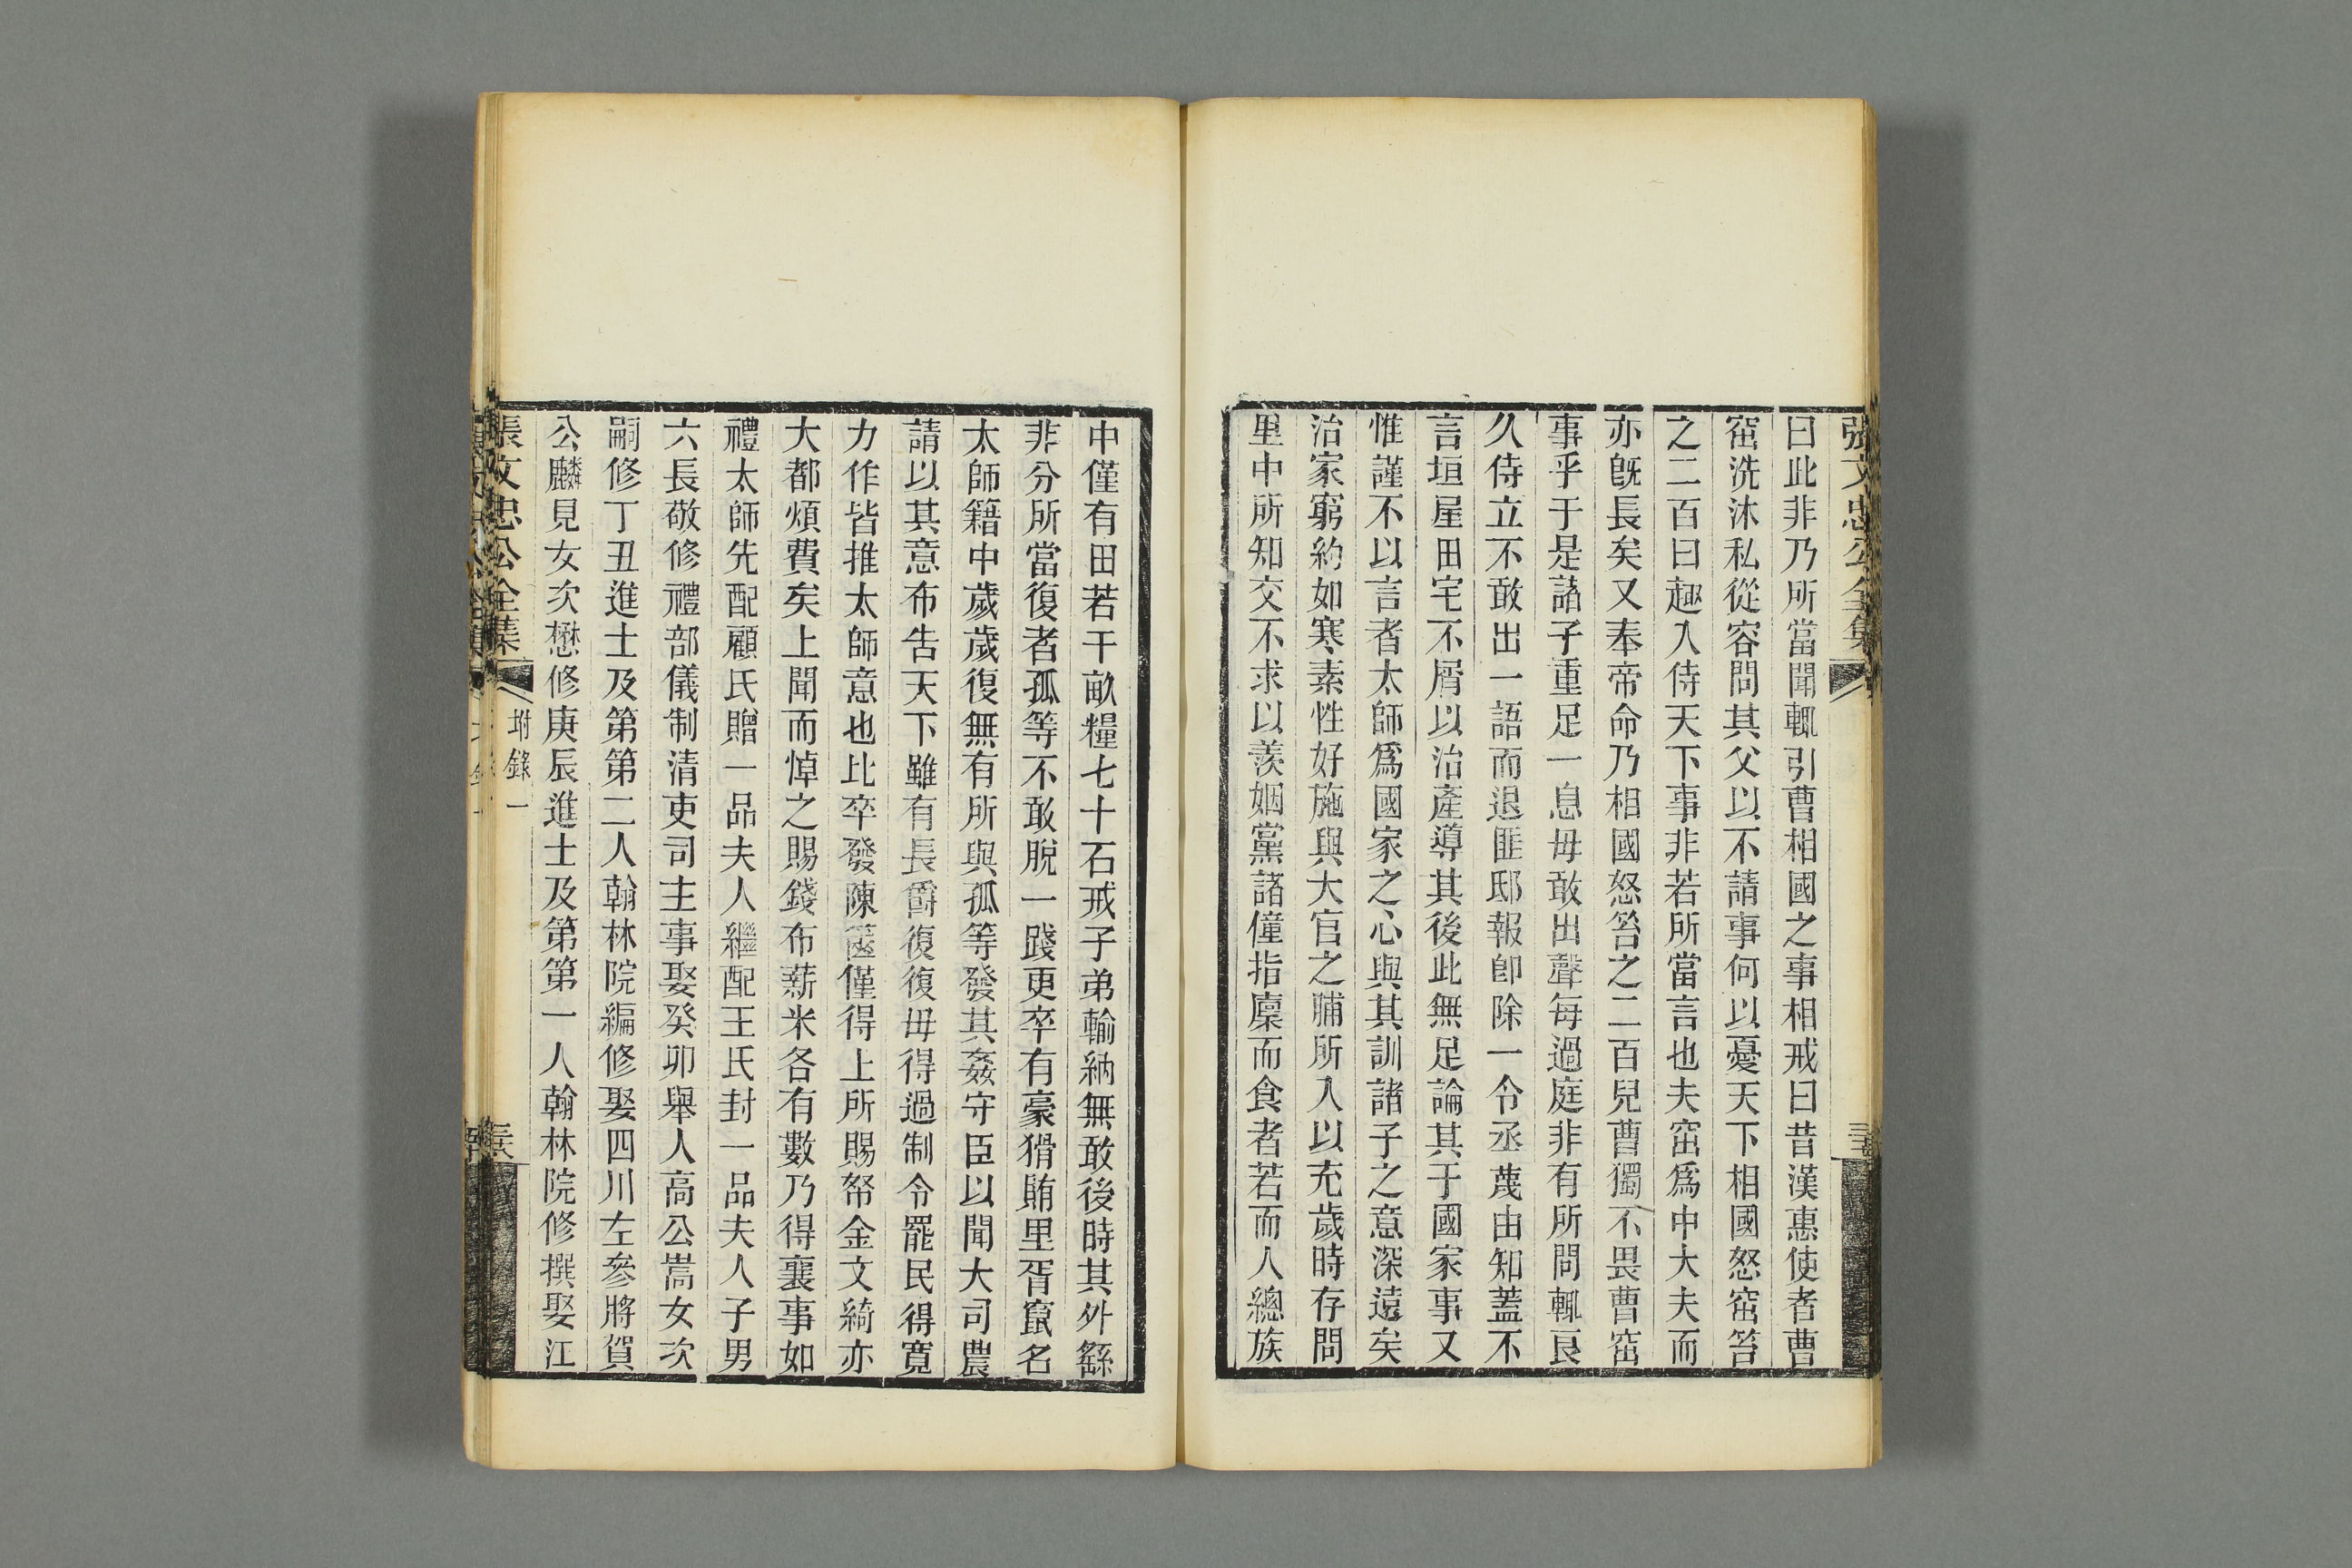 張文忠公全集
曰此非乃所當聞輒引曹相國之事相戒曰昔漢惠使者曹
窋洗沐私從容問其父以不請事何以憂天下相國怒窋笞
之二百曰趣入侍天下事非若所當言也夫窋爲中大夫而
亦旣長矣又奉帝命乃相國怒笞之二百兒曹獨不畏曹窋
事乎于是諸子重足一息毋敢出聲每過庭非有所問輒艮
久侍立不敢出一語而退匪邸報卽除一令丞蔑由知蓋不
言垣屋田宅不屑以治產導其後此無足論其于國家事又
惟謹不以言者太師爲國家之心與其訓諸子之意深遠矣
治家窮約如寒素性好施與大官之脯所入以充歲時存問
里中所知交不求以羨姻黨諸僮指廩而食者若而人總族
中僅有田若干畝糧七十石戒子弟輸納無敢後時其外繇
非分所當復者孤等不敢脫一踐更卒有豪猾賄里胥竄名
太師籍中歲歲復無有所與孤等發其姦守臣以聞大司農
請以其意布告天下雖有長爵復復毋得過制令罷民得寬
力作皆推太師意也比卒發陳篋僅得上所賜帑金文綺亦
大都煩費矣上聞而悼之賜錢布薪米各有數乃得襄事如
禮太師先配顧氏贈一品夫人繼配王氏封一品夫人子男
六長敬修禮部儀制清吏司主事娶癸卯舉人高公嵩女次
嗣修丁丑進士及第第二人翰林院編修娶四川左參將賀
公麟見女次懋修庚辰進士及第第一人翰林院修撰娶江
張文忠公全集
坿錄一